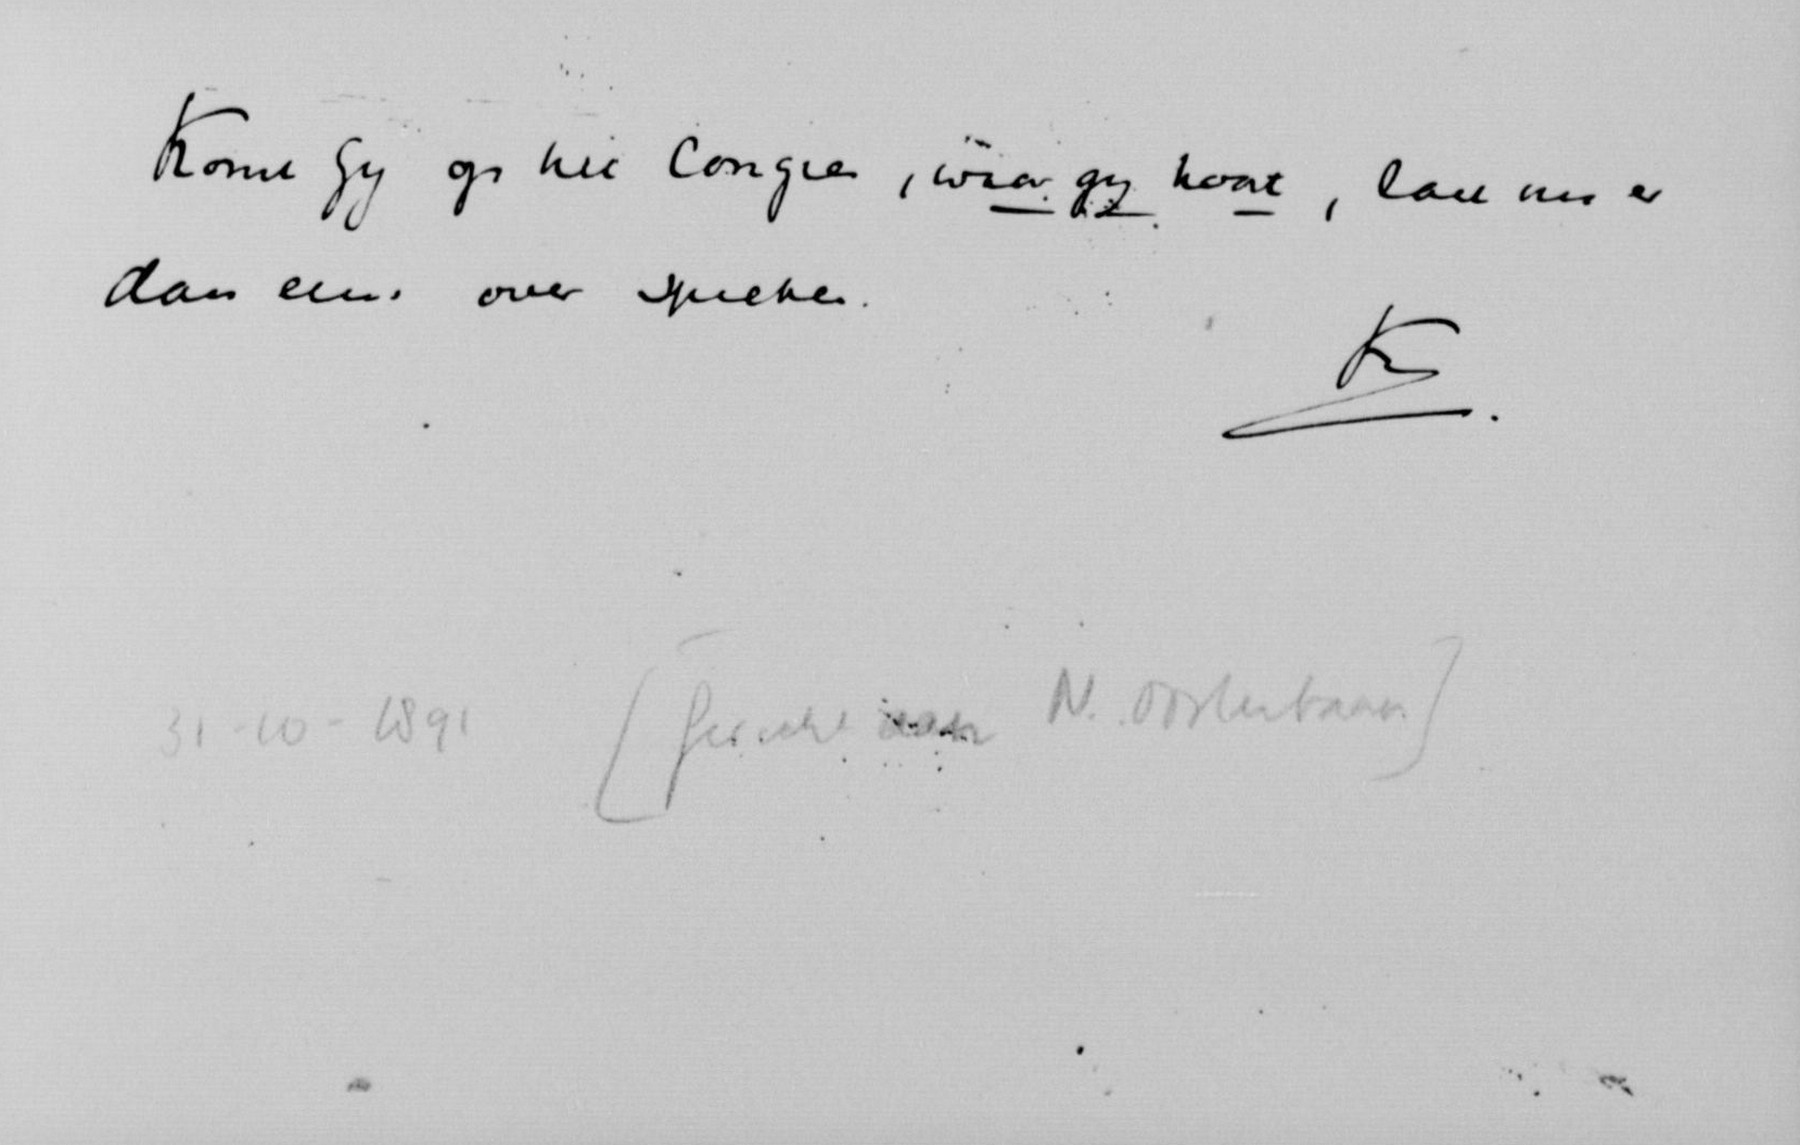 Komt Gy op het Congres, waar gy hoort, laat ons er
dan eens over spreken.
K.
31-10-1891 [Gericht aan N. Oosterbaan]